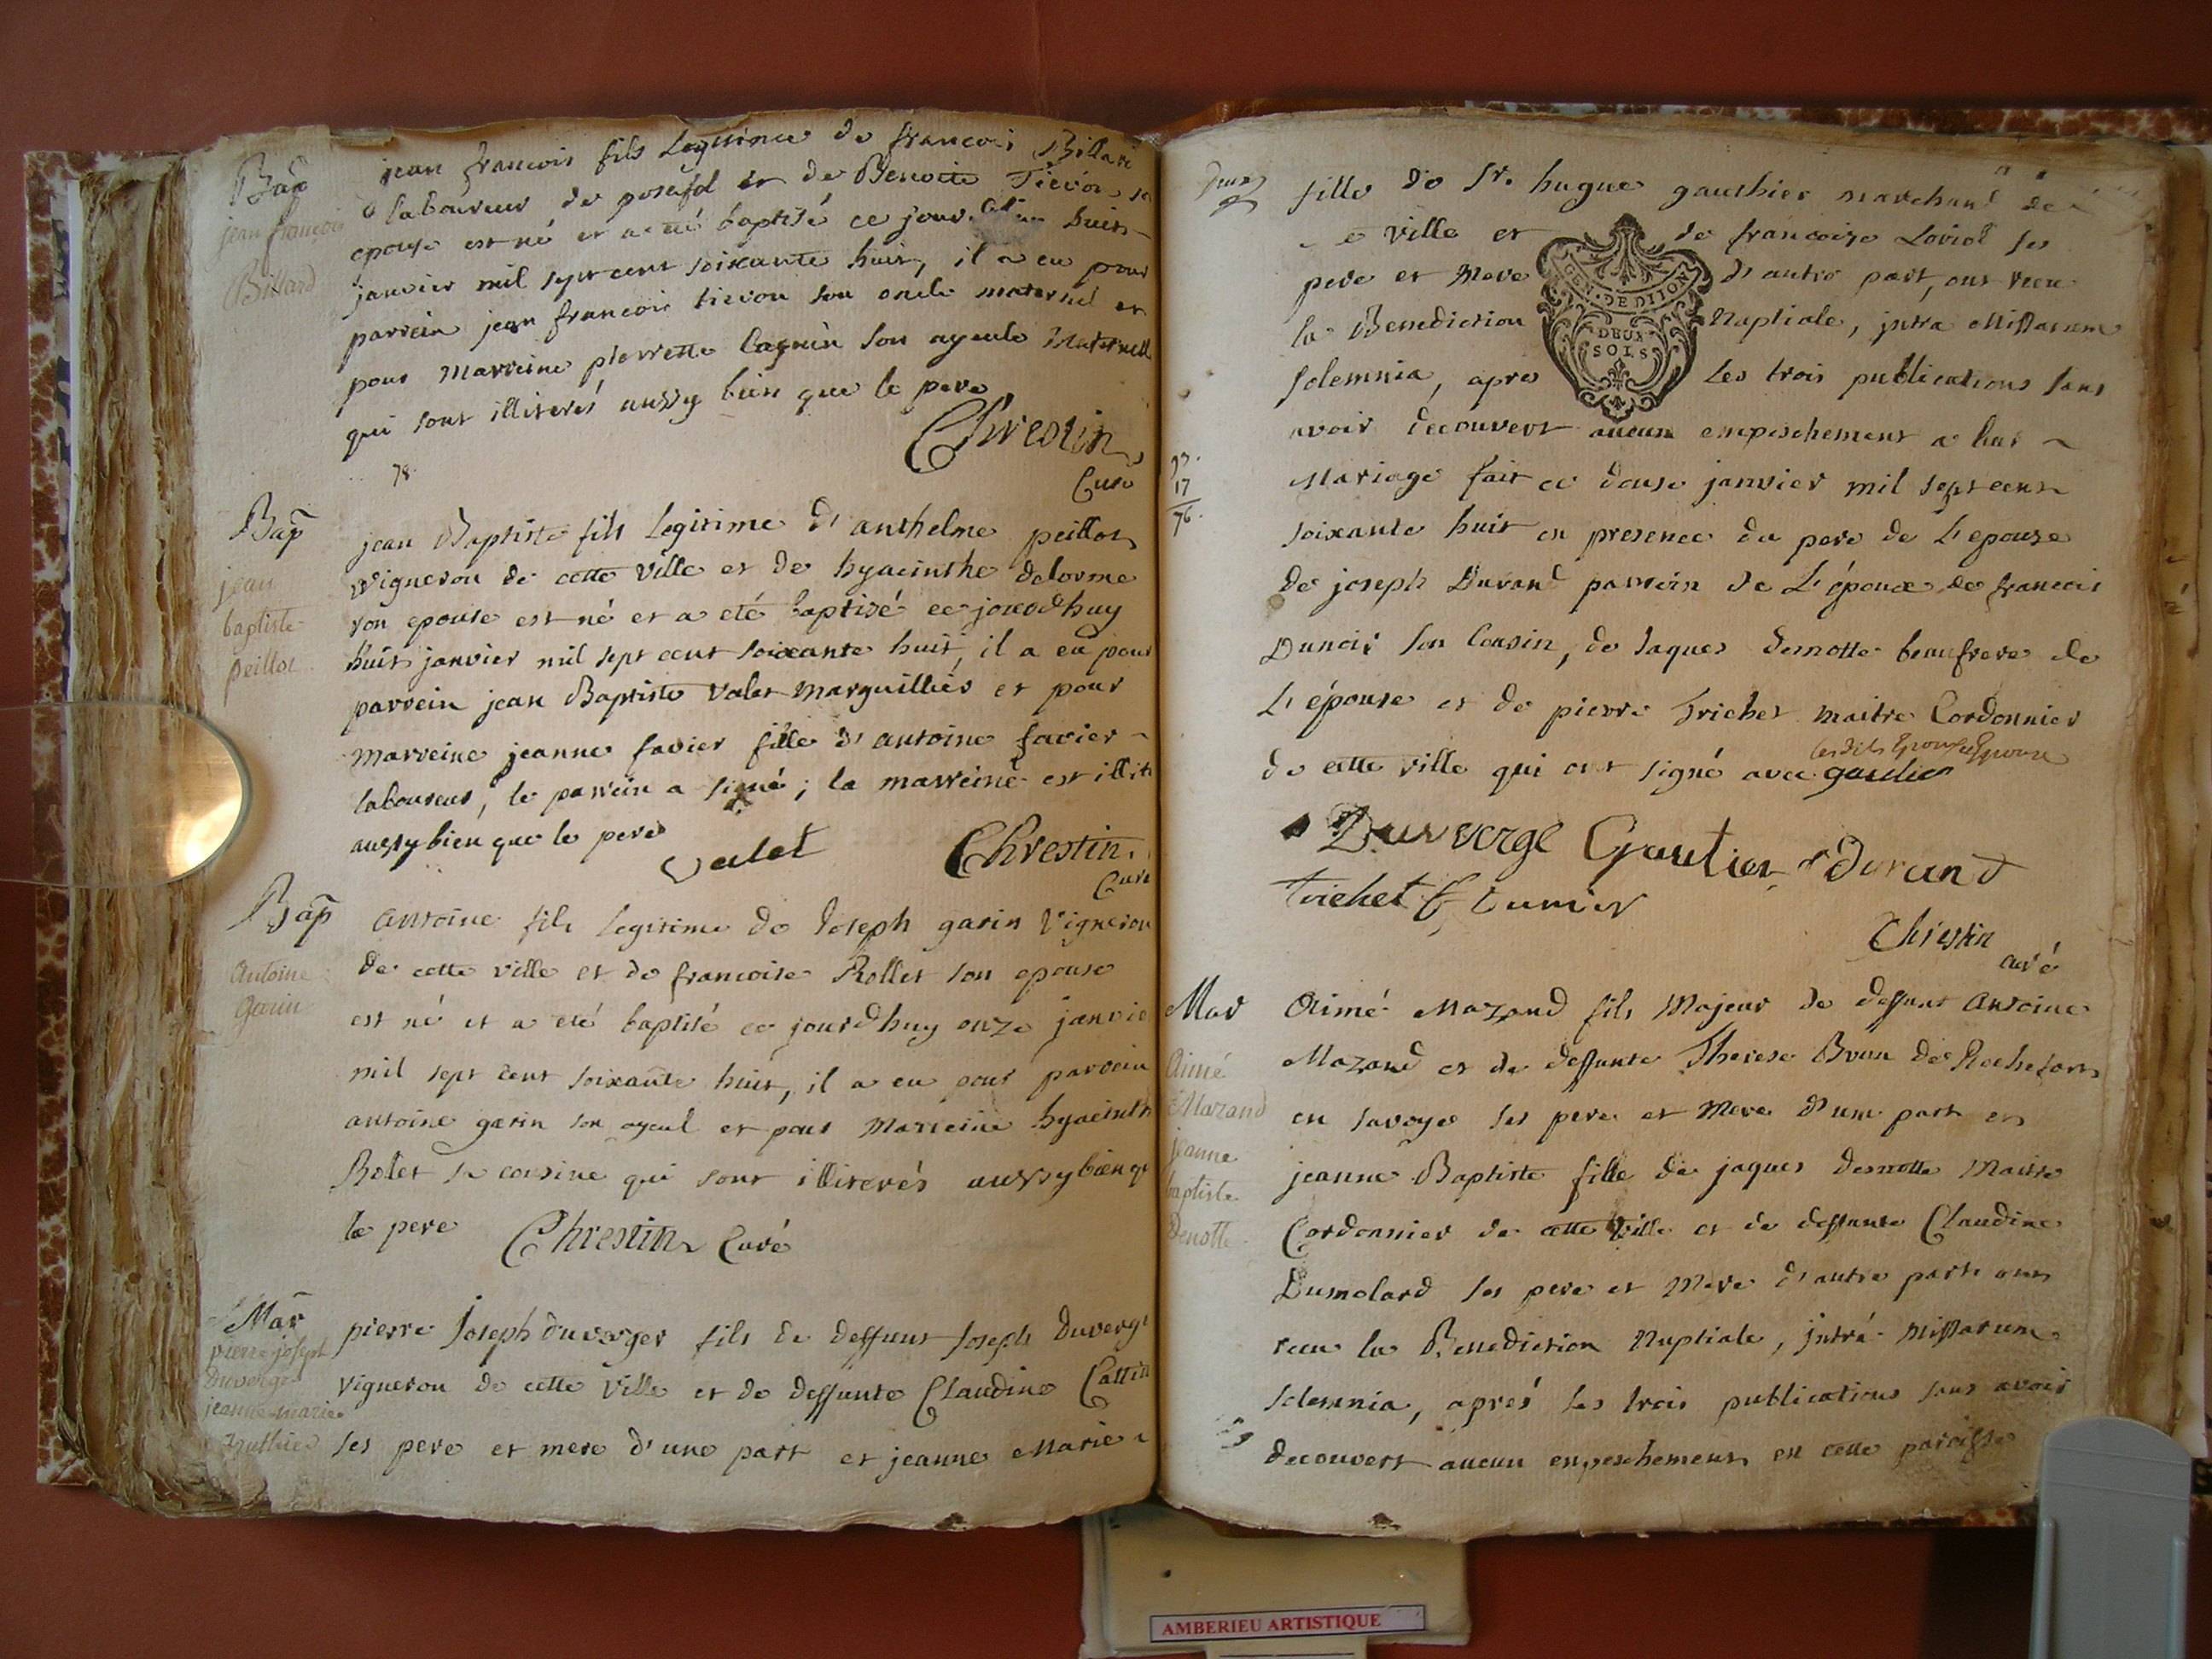 Bap
jean françois
Billard
jean francois fils Legitime de francois Billard
laboureur de posafol et de Benoite Tievon sa
epouse est né et a eté baptisé ce jour huit
janvier mil sept cent soixante huit, il a eu pour
parrein jean francois tievon son oncle maternel et
pour Marreine pierrette Cagnin son ayeule Maternelle
qui sont illiterés aussy bien que le pere
Chrestin
Curé
78
Bap
jean
baptiste
peillot
jean Baptiste fils Legitime d'anthelme peillot
vigneron de cette ville et de hyacinthe delorme
son epouse est né et a eté baptisé ce jourdhuy
huit janvier mil sept cent soixante huit, il a eu pour
parrein jean Baptiste valet marguillier et pour
marreine jeanne favier fille d'antoine favier
laboureur, le parrein a signé; la marreine est illit
aussy bien que le pere
valet Chrestin
Curé
Bap
Antoine
garin
Antoine fils legitime de Joseph garin Vigneron
de cette ville et de francoise Rollet son epouse
est né et a eté baptisé ce jourdhuy onze janvie
mil sept cent soixante huit, il a eu pour parrein
antoine garin son ayeul et pour Marreine hyacinth
Rolet sa cousine qui sont illiterés aussy bien q
le pere Chrestin Curé
Mar
pierre joseph
Duverger
jeanne marie
gauthier
pierre Joseph duverger fils de deffunt Joseph Duverge
vigneron de cette ville et de deffunte Claudine Cattin
ses pere et mere d'une part et jeanne Marie
fille de Sr. hugue gauthier marchand de
ville et de francoise Loviol ses
pere et Mere d'autre part, ont receu
la Benediction Nuptiale, jntra Missarum
solemnia, apres Les trois publications sans
GEN. DE DIJON
DEUX
SOLS
avoir decouvert aucun empeschement a leur
Mariage fait ce douse janvier mil sept cent
soixante huit en presence du pere de L'epouse
de joseph Durand parrein de L'époux de francois
Dunoir son Cousin, de Jaques demotte beaufrere de
L'épouse et de pierre Trichet maitre Cordonnier
de cette ville qui ont signé avec lesdits Epoux Epouse
gautier
17
76
Duvverge Gautier Durand
trichet
Chrestin
curé
Mar
Aimé
Mazand
jeanne
baptiste
Denotte
Aimé Mazand fils Majeur de deffunt Antoine
Mazand et de deffunte Therese Brun de Rochefort
en savoye ses pere et Mere d'une part et
jeanne Baptiste fille de jaques demotte Maitre
Cordonnier de cette Ville et de deffunte Claudine
Dumolard ses pere et Mere d'autre part ont
receu la Benediction Nuptiale, jntrá Missarum
solemnia, aprés les trois publications sans avoir
decouvert aucun enpeschement en cette paroisse
AMBERIEU ARTISTIQUE